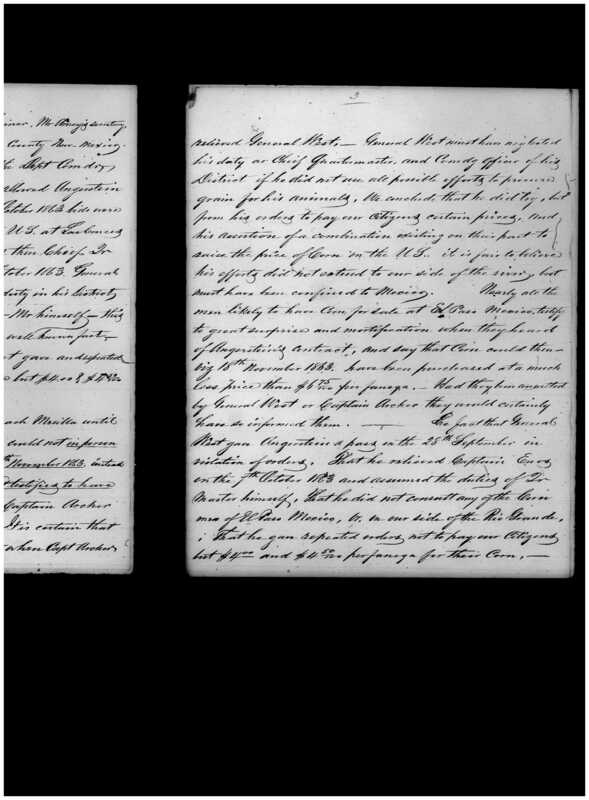 Mr Amey's secretary.
County New Mexico.
Dept Comdr,
Augerstein
October 1863 bids were
U.S. at Las Cruces
then Chief Qr
October 1863. General
duty in his District
Mr himself — This
well known fact,
t gave and repeated
but $4.00 & $4 50/100
each Mesilla until
could not in person
November 1863. instead
testifies to have
Captain Archer
It is certain that
when Capt Archer
3
relieved General West. — General West must have neglected
his duty as Chief Quartermaster, and Comdg Officer of his
District if he did not use all possible efforts to procure
grain for his animals, We conclude that he did try, but
from his orders to pay our Citizens certain prices, and
his assertion of a combination existing on their part to
raise the price of Corn in the U.S. it is fair to believe
his efforts did not extend to our side of the river, but
must have been confined to Mexico. Nearly all the
men likely to have Corn for sale at El Paso Mexico, testify
to great surprise and mortification when they heard
of Augerstein's contract, and say that Corn could then
viz 18th November 1863. have been purchased at a much
less price than $6 75/100 per fanega. — Had they been consulted
by General West or Captain Archer they would certainly
have so informed them. — The fact that General
West gave Augerstein a pass on the 28th September in
violation of orders, That he relieved Captain
on the 7th October 1863 and assumed the duties of Qr
Master himself, That he did not consult any of the Corn
men of El Paso Mexico, or, on our side of the Rio Grande,
; That he gave repeated orders, not to pay our Citizens
but $4 00 and $4 50/100 per fanega for their Corn, —